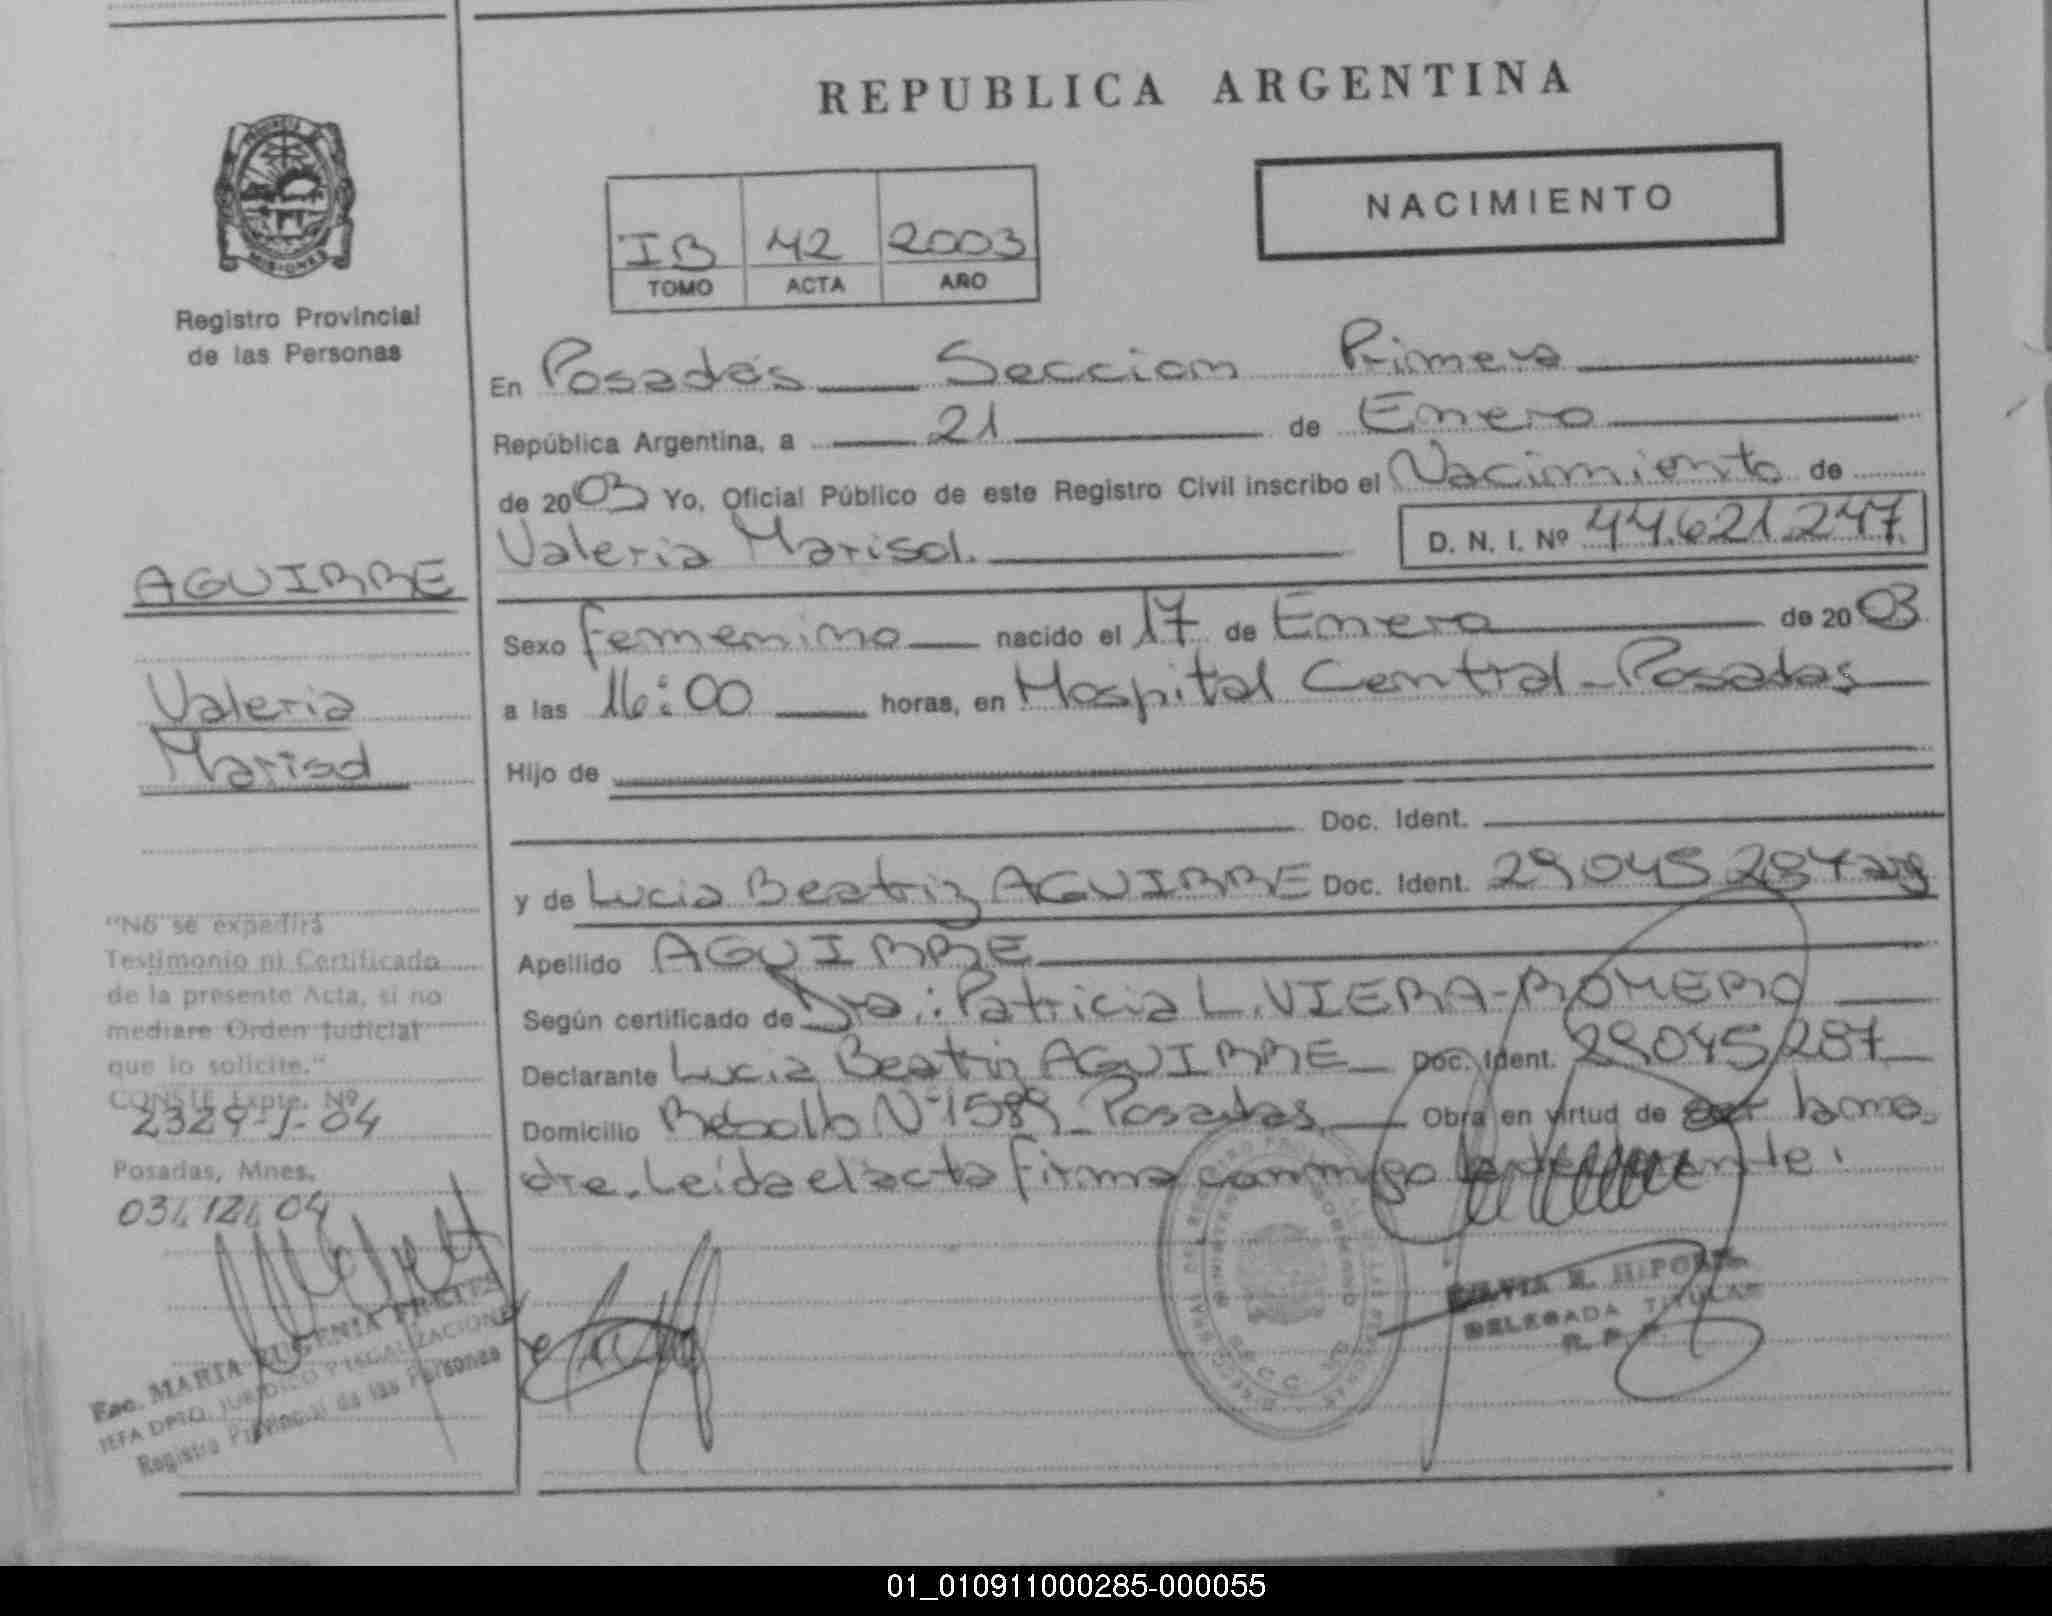 REPUBLICA ARGENTINA
NACIMIENTO
IB 42 2003
TOMO ACTA AÑO
PROVINCIA DE
MISIONES
Registro Provincial
de las Personas
En Posadas Seccion Primera
República Argentina, a 21 de Enero
de 2003 Yo, Oficial Público de este Registro Civil inscribo el Nacimiento de
Valeria Marisol. D. N. I. Nº 44.621.247
Sexo femenino nacido el 17 de Enero de 2003
a las 16:00 horas, en Hospital Central - Posadas
Hijo de
Doc. Ident.
y de Lucia Beatriz AGUIRRE Doc. Ident. 29045287 arg
Apellido AGUIRRE
Según certificado de Dra.: Patricia L. VIERA-ROMERO
Declarante Lucia Beatriz AGUIRRE Doc. Ident. 29045287
Domicilio Rebollo Nº 1589 - Posadas Obra en virtud de ser la ma-
dre. Leida el acta firma conmigo
AGUIRRE
Valeria
Marisol
"No se expedirá
Testimonio ni Certificado
de la presente Acta, si no
mediare Orden Judicial
que lo solicite."
CONSTE Expte. Nº
2329-J-04
Posadas, Mnes.
03/12/04
Esc. MARIA EUGENIA
JEFA DPTO. JURIDICO Y LEGALIZACIONES
Registro Provincial de las Personas
DELEGADA TITULAR
R. P. P.
01_010911000285-000055